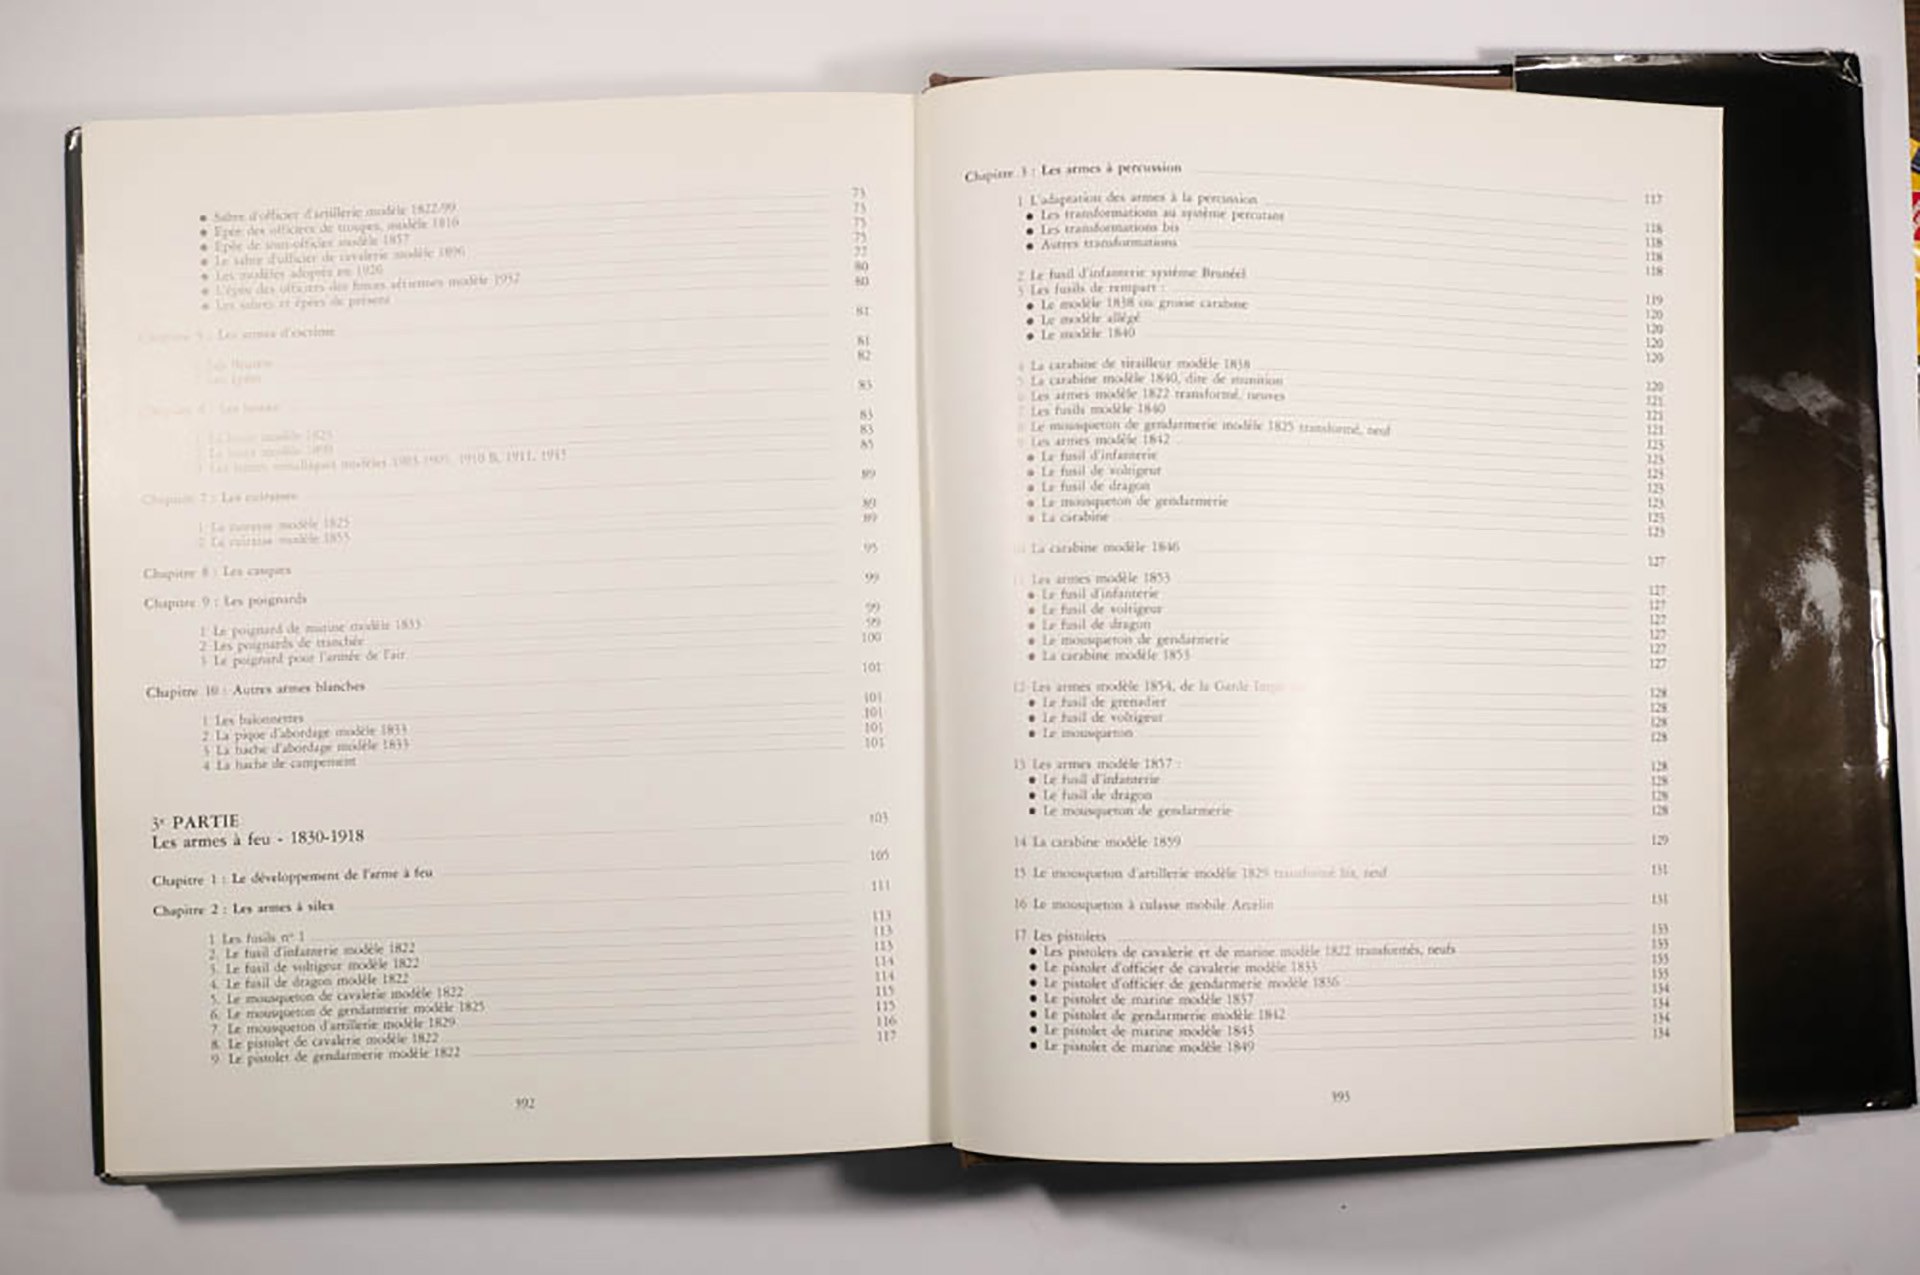 ● Sabre d'officier d'artillerie modèle 1822/99 73
● Epée des officiers de troupes, modèle 1816 73
● Epée de sous-officier modèle 1857 73
● Le sabre d'officier de cavalerie modèle 1896 75
● Les modèles adoptés en 1920 77
● L'épée des officiers des forces aériennes modèle 1932 80
● Les sabres et épées de présent 80
Chapitre 5 : Les armes d'escrime 81
81
82
83
83
83
85
Chapitre 7 : Les cuirasses 89
1 La cuirasse modèle 1825 89
2 La cuirasse modèle 1855 89
Chapitre 8 : Les casques 95
Chapitre 9 : Les poignards 99
1 Le poignard de marine modèle 1833 99
2 Les poignards de tranchée 99
3 Le poignard pour l'armée de l'air 100
Chapitre 10 : Autres armes blanches 101
1 Les baïonnettes 101
2 La pique d'abordage modèle 1833 101
3 La hache d'abordage modèle 1833 101
4 La hache de campement 101
3e PARTIE
Les armes à feu - 1830-1918 103
Chapitre 1 : Le développement de l'arme à feu 105
Chapitre 2 : Les armes à silex 111
1 Les fusils n° 1 113
2. Le fusil d'infanterie modèle 1822 113
3. Le fusil de voltigeur modèle 1822 113
4. Le fusil de dragon modèle 1822 114
5. Le mousqueton de cavalerie modèle 1822 114
6. Le mousqueton de gendarmerie modèle 1825 115
7. Le mousqueton d'artillerie modèle 1829 115
8. Le pistolet de cavalerie modèle 1822 116
9. Le pistolet de gendarmerie modèle 1822 117
392
Chapitre 3 : Les armes à percussion 117
1 L'adaptation des armes à la percussion
● Les transformations au système percutant 118
● Les transformations bis 118
● Autres transformations 118
2 Le fusil d'infanterie système Brunéel 118
3 Les fusils de rempart : 119
● Le modèle 1838 ou grosse carabine 120
● Le modèle allégé 120
● Le modèle 1840 120
4 La carabine de tirailleur modèle 1838 120
5 La carabine modèle 1840, dite de munition 120
6 Les armes modèle 1822 transformé, neuves 121
7 Les fusils modèle 1840 121
8 Le mousqueton de gendarmerie modèle 1825 transformé, neuf 121
9 Les armes modèle 1842 123
● Le fusil d'infanterie 123
● Le fusil de voltigeur 123
● Le fusil de dragon 123
● Le mousqueton de gendarmerie 123
● La carabine 123
10 La carabine modèle 1846 127
11 Les armes modèle 1853 127
● Le fusil d'infanterie 127
● Le fusil de voltigeur 127
● Le fusil de dragon 127
● Le mousqueton de gendarmerie 127
● La carabine modèle 1853 127
12 Les armes modèle 1854, de la Garde 128
● Le fusil de grenadier 128
● Le fusil de voltigeur 128
● Le mousqueton 128
13 Les armes modèle 1857 : 128
● Le fusil d'infanterie 128
● Le fusil de dragon 128
● Le mousqueton de gendarmerie 128
14 La carabine modèle 1859 129
15 Le mousqueton d'artillerie modèle 1829 transformé bis, neuf 131
16 Le mousqueton à culasse mobile Arcelin 131
17 Les pistolets 133
● Les pistolets de cavalerie et de marine modèle 1822 transformés, neufs 133
● Le pistolet d'officier de cavalerie modèle 1833 133
● Le pistolet d'officier de gendarmerie modèle 1836 133
● Le pistolet de marine modèle 1837 134
● Le pistolet de gendarmerie modèle 1842 134
● Le pistolet de marine modèle 1845 134
● Le pistolet de marine modèle 1849 134
393